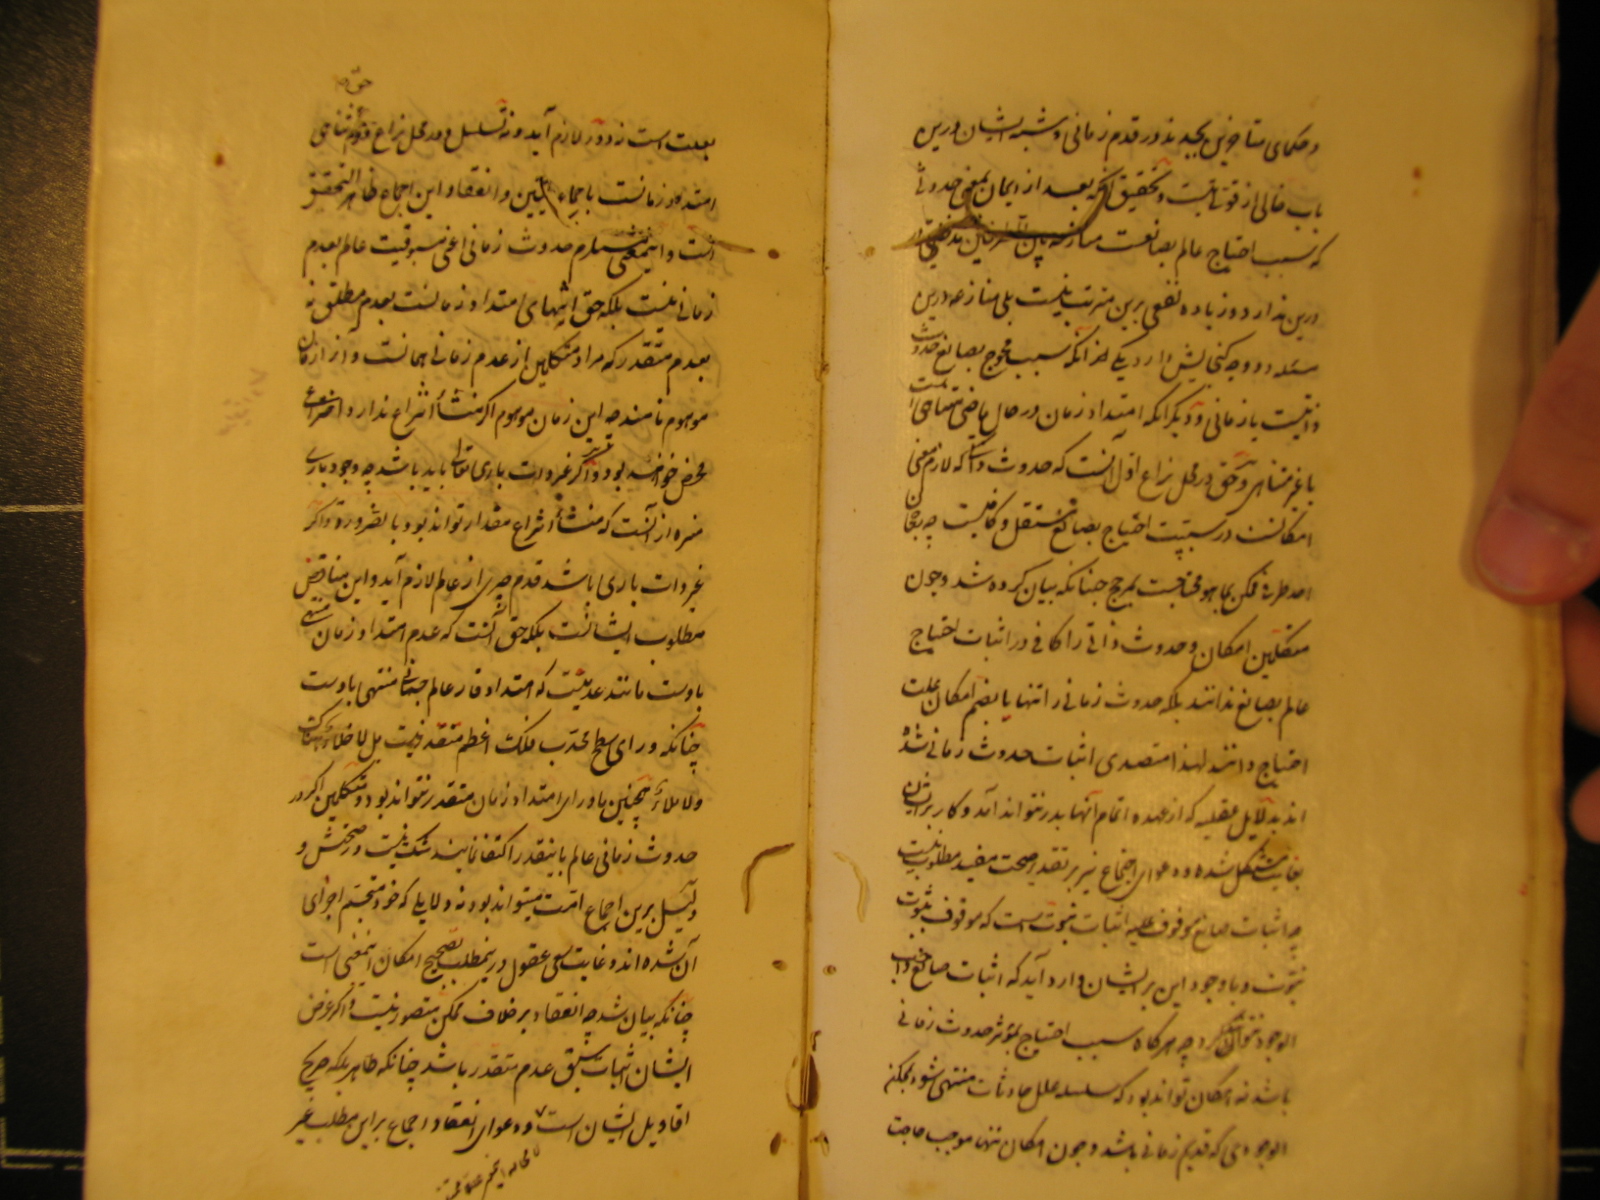 و حکمای متأخرین بجد بذ در قدم زمانی و شبه ایشان درین
باب خالی از قوتی نیست و تحقیق آنکه بعد از ایمان بمعنی حدوثی
که سبب احتیاج عالم بصانعست منازعه
درین ندارد و زیاده نفعی برین مترتب نیست بلی منازعه درین
مسئله دو وجه گنجایش دارد یکی آنکه سبب محوج بصانع حدوث
ذاتیست یا زمانی و دیگر آنکه امتداد زمان در حال ماضی متناهی است
یا غیر متناهی و حق در محل نزاع اول آنست که حدوث ذاتی که لازم معنی
امکانست در سببیت احتیاج بصانع مستقل و کافیست چه رجحان
احد طرفی ممکن بما هو محتاجست بمرجح چنانکه بیان کرده شد و چون
متکلمین امکان و حدوث ذاتی را کافی در اثبات احتیاج
عالم بصانع ندانند بلکه حدوث زمانی را تنها یا بضم امکان علت
احتیاج دانند لهذا متصدی اثبات حدوث زمانی شده
اند بدلایل عقلیه که از عهده اتمام آنها بدر نتوانند آمد و کار برایشان
بغایت مشکل شده و دعوای اجماع نیز بر تقدیر صحت مفید مطلوب نیست
چه اثبات صانع موقوف علیه اثبات نبوت است که موقوف ثبوت
نبوت و با وجود این بر ایشان وارد آید که اثبات صانع واجب
الوجود نتوان کرد چه هرگاه سبب احتیاج بمؤثر حدوث زمانی
باشد نه امکان تواند بود که سلسله علل حادثات منتهی شود بممکن
الوجودی که قدیم زمانی باشد و چون امکان تنها موجب حاجت
حق
بعلت است نه دور لازم آید و نه تسلسل و در محل نزاع دوم تناهی
امتداد زمانست باجماع ملیین و انعقاد این اجماع ظاهر التحقیق
است و اینمعنی مستلزم حدوث زمانی اعنی مسبوقیت عالم بعدم
زمانی نیست بلکه حق انتهای امتداد زمانست بعدم مطلق نه
بعدم متقدر که مراد متکلمین از عدم زمانی همانست و از آن زمان
موهوم نامند چه این زمان موهوم اگر منشأ انتزاع ندارد اختراعی
محض خواهد بود و اگر غیر ذات باری تعالی باید باشد چه وجود باری
منزه از آنست که منشأ انتزاع مقدار تواند بود بالضروره و اگر
غیر ذات باری باشد قدم چیزی از عالم لازم آید و این مناقض
مطلوب ایشانست بلکه حق آنست که عدم امتداد زمان منتهی
باوست مانند عدمیست که امتداد قار عالم جسمانی منتهی باوست
چنانکه ورای سطح محدب فلک اعظم متقدر نیست بل لا خلاء است
ولا ملاء همچنین ماورای امتداد زمان متقدر نتواند بود و متکلمین اگر در
حدوث زمانی عالم باینقدر اکتفا نمایند شک نیست در صحتش و
دلیل برین اجماع امت میتواند بود نه دلایلی که خود متجشم اجرای
آن شده اند و غایت سعی عقول درینمطلب تصحیح امکان اینمعنی است
چنانکه بیان شد چه انعقاد بر خلاف ممکن متصور نیست و اگر غرض
ایشان اثبات سبق عدم متقدر باشد چنانکه ظاهر بلکه صریح
اقاویل ایشان است دعوای انعقاد اجماع بر این مطلب غیر